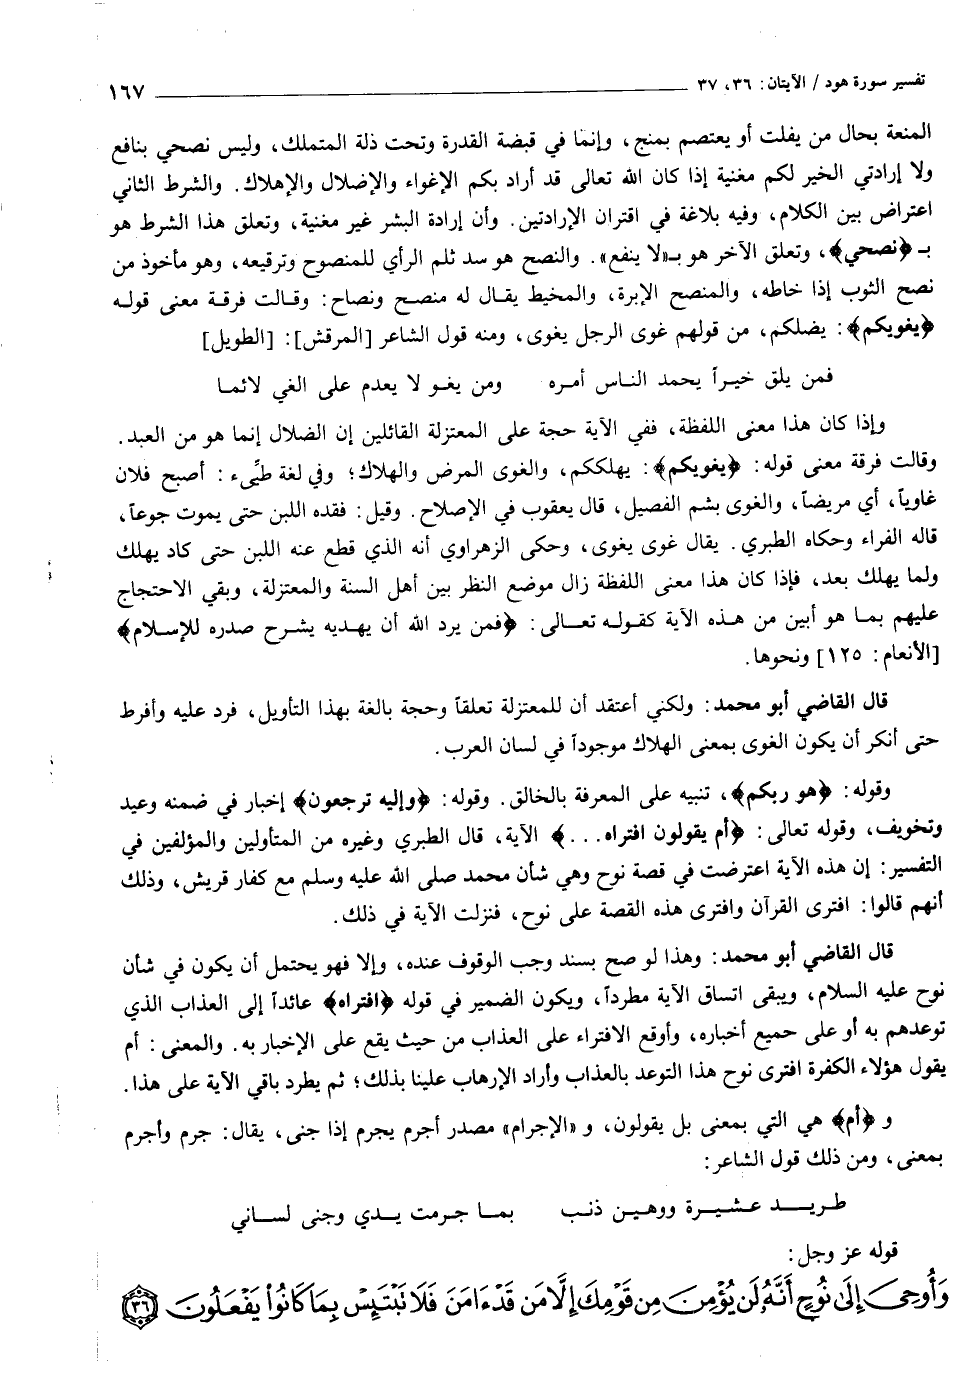 تفسير سورة هود / الآيتان: ٣٦، ٣٧ ١٦٧
المنعة بحال من يفلت أو يعتصم بمنج، وإنما في قبضة القدرة وتحت ذلة المتملك، وليس نصحي بنافع
ولا إرادتي الخير لكم مغنية إذا كان الله تعالى قد أراد بكم الإغواء والإضلال والإهلاك. والشرط الثاني
اعتراض بين الكلام، وفيه بلاغة في اقتران الإرادتين. وأن إرادة البشر غير مغنية، وتعلق هذا الشرط هو
بـ ﴿نصحي﴾، وتعلق الآخر هو بـ«لا ينفع». والنصح هو سد ثلم الرأي للمنصوح وترقيعه، وهو مأخوذ من
نصح الثوب إذا خاطه، والمنصح الإبرة، والمخيط يقال له منصح ونصاح: وقالت فرقة معنى قوله
﴿يغويكم﴾: يضلكم، من قولهم غوى الرجل يغوى، ومنه قول الشاعر [المرقش]: [الطويل]
فمن يلق خيراً يحمد الناس أمره ومن يغو لا يعدم على الغي لائما
وإذا كان هذا معنى اللفظة، ففي الآية حجة على المعتزلة القائلين إن الضلال إنما هو من العبد.
وقالت فرقة معنى قوله: ﴿يغويكم﴾: يهلككم، والغوى المرض والهلاك؛ وفي لغة طيِّىء: أصبح فلان
غاوياً، أي مريضاً، والغوى بشم الفصيل، قال يعقوب في الإصلاح. وقيل: فقده اللبن حتى يموت جوعاً،
قاله الفراء وحكاه الطبري. يقال غوى يغوى، وحكى الزهراوي أنه الذي قطع عنه اللبن حتى كاد يهلك
ولما يهلك بعد، فإذا كان هذا معنى اللفظة زال موضع النظر بين أهل السنة والمعتزلة، وبقي الاحتجاج
عليهم بما هو أبين من هذه الآية كقوله تعالى: ﴿فمن يرد الله أن يهديه يشرح صدره للإسلام﴾
[الأنعام: ١٢٥] ونحوها.
قال القاضي أبو محمد: ولكني أعتقد أن للمعتزلة تعلقاً وحجة بالغة بهذا التأويل، فرد عليه وأفرط
حتى أنكر أن يكون الغوى بمعنى الهلاك موجوداً في لسان العرب.
وقوله: ﴿هو ربكم﴾، تنبيه على المعرفة بالخالق. وقوله: ﴿وإليه ترجعون﴾ إخبار في ضمنه وعيد
وتخويف، وقوله تعالى: ﴿أم يقولون افتراه...﴾ الآية، قال الطبري وغيره من المتأولين والمؤلفين في
التفسير: إن هذه الآية اعترضت في قصة نوح وهي شأن محمد صلى الله عليه وسلم مع كفار قريش، وذلك
أنهم قالوا: افترى القرآن وافترى هذه القصة على نوح، فنزلت الآية في ذلك.
قال القاضي أبو محمد: وهذا لو صح بسند وجب الوقوف عنده، وإلا فهو يحتمل أن يكون في شأن
نوح عليه السلام، ويبقى اتساق الآية مطرداً، ويكون الضمير في قوله ﴿افتراه﴾ عائداً إلى العذاب الذي
توعدهم به أو على جميع أخباره، وأوقع الافتراء على العذاب من حيث يقع على الإخبار به. والمعنى: أم
يقول هؤلاء الكفرة افترى نوح هذا التوعد بالعذاب وأراد الإرهاب علينا بذلك؛ ثم يطرد باقي الآية على هذا.
و ﴿أم﴾ هي التي بمعنى بل يقولون، و «الإجرام» مصدر أجرم يجرم إذا جنى، يقال: جرم وأجرم
بمعنى، ومن ذلك قول الشاعر:
طريد عشيرة ووهين ذنب بما جرمت يدي وجنى لساني
قوله عز وجل:
وَأُوحِيَ إِلَىٰ نُوحٍ أَنَّهُ لَن يُؤْمِنَ مِن قَوْمِكَ إِلَّا مَن قَدْ ءَامَنَ فَلَا تَبْتَئِسْ بِمَا كَانُوا يَفْعَلُونَ ٣٦